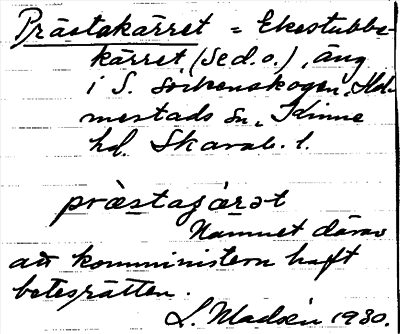 Prästakärret = Ekestubbe-
kärret (se d. o.), äng
i S. Sörkenskogen, Hol-
mestads sn, Kinne
hd. Skarab. l.
præ̀stacárət
Namnet därav
att komministern haft
betesrätten.
L. Madsén 1930.